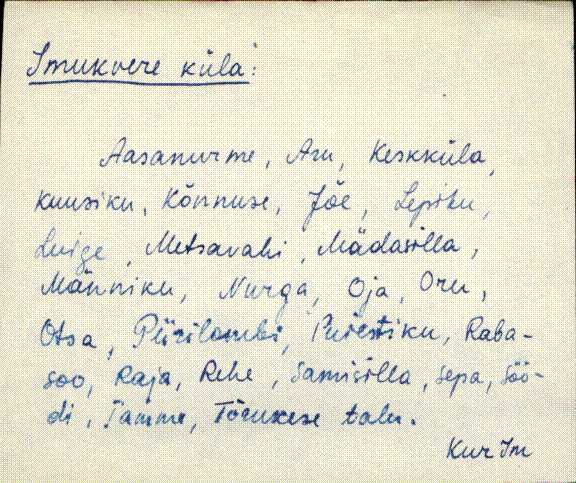 Imukvere küla:
Aasanurme, Aru, Keskküla,
Kuusiku, Kõnnuse, Jõe, Lepiku,
Luige, Metsavahi, Mädasilla,
Männiku, Nurga, Oja, Oru,
Otsa, Piirilombi, Puiestiku, Raba-
soo, Raja, Rehe, Samisilla, Sepa, Söö-
di, Tamme, Tõrukese talu.
Kur Im